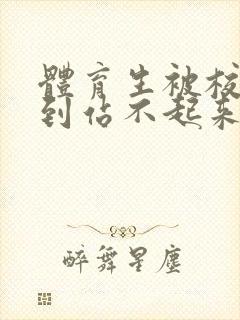 體育生被校
到佔不起來
醉舞星塵